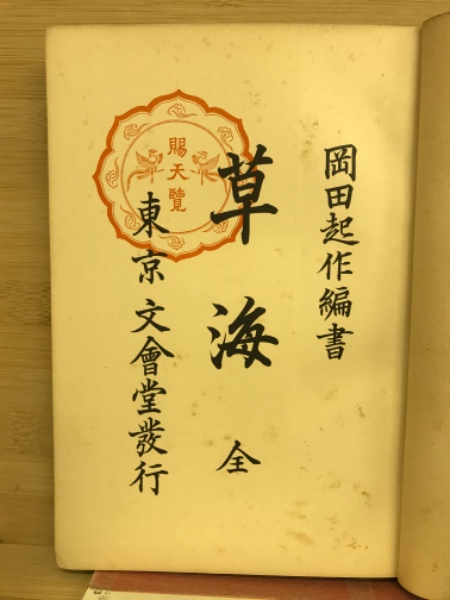 岡田起作編書
草海 全
賜天覽
東京 文會堂發行